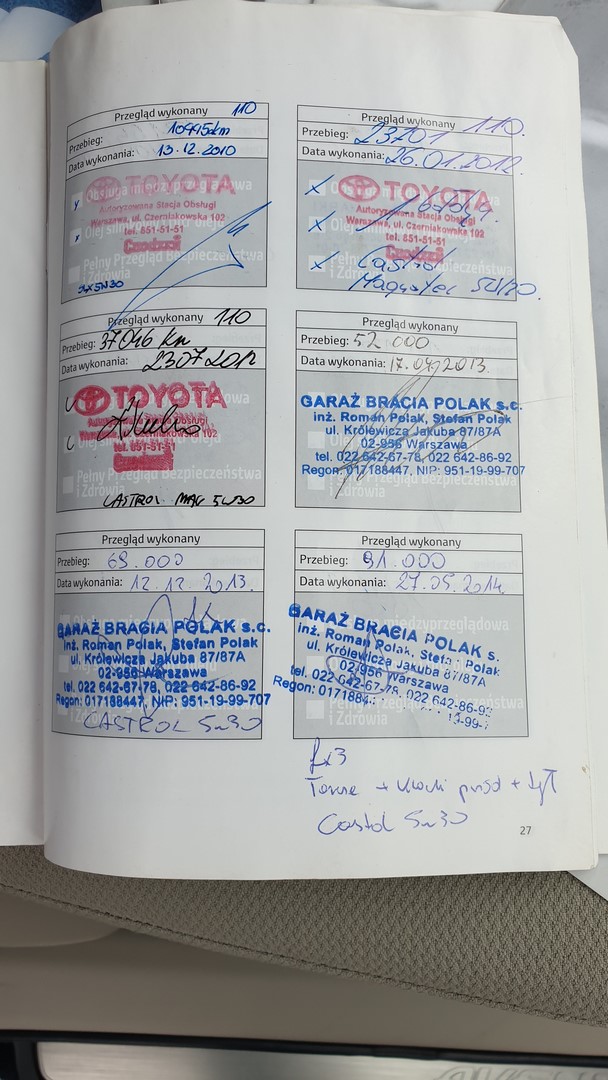 Przegląd wykonany 110
Przebieg: 10995km
Data wykonania: 13.12.2010
Obsługa międzyprzeglądowa
TOYOTA
Autoryzowana Stacja Obsługi
Warszawa, ul. Czerniakowska 102
tel. 851-51-51
Pełny Przegląd Bezpieczeństwa
i Zdrowia
5W30
Przegląd wykonany 110.
Przebieg: 23701
Data wykonania: 26.01.2012.
TOYOTA
Autoryzowana Stacja Obsługi
Warszawa, ul. Czerniakowska 102
tel. 851-51-51
Castrol
Pełny Przegląd Bezpieczeństwa
i Zdrowia
Przegląd wykonany 110
Przebieg: 37046 km
Data wykonania: 23072012
TOYOTA
Autoryzowana Stacja Obsługi
Warszawa, ul. Czerniakowska 102
tel. 851-51-51
Pełny Przegląd Bezpieczeństwa
i Zdrowia
CASTROL MAG 5W30
Przegląd wykonany
Przebieg: 52 000
Data wykonania: 17.04.2013.
GARAŻ BRACIA POLAK s.c.
inż. Roman Polak, Stefan Polak
ul. Królewicza Jakuba 87/87A
02-956 Warszawa
tel. 022 642-67-78, 022 642-86-92
Regon: 017188447, NIP: 951-19-99-707
Pełny Przegląd Bezpieczeństwa
i Zdrowia
Przegląd wykonany
Przebieg: 69.000
Data wykonania: 12.12.2013.
GARAŻ BRACIA POLAK s.c.
inż. Roman Polak, Stefan Polak
ul. Królewicza Jakuba 87/87A
02-956 Warszawa
tel. 022 642-67-78, 022 642-86-92
Regon: 017188447, NIP: 951-19-99-707
i Zdrowia
CASTROL 5w30
Przegląd wykonany
Przebieg: 91.000
Data wykonania: 27.05.2014.
międzyprzeglądowa
GARAŻ BRACIA POLAK s.
inż. Roman Polak, Stefan Polak
ul. Królewicza Jakuba 87/87A
02-956 Warszawa
tel. 022 642-67-78, 022 642-86-92
Regon: 01718844
Pełny Przegląd Bezpieczeństwa
i Zdrowia
+ klocki przód + tył
Castol 5w30
27